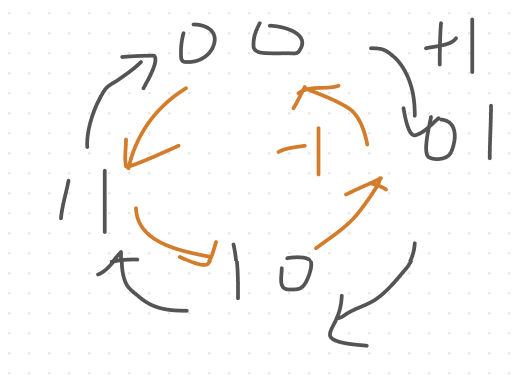 00 +1
01
-1
11
10